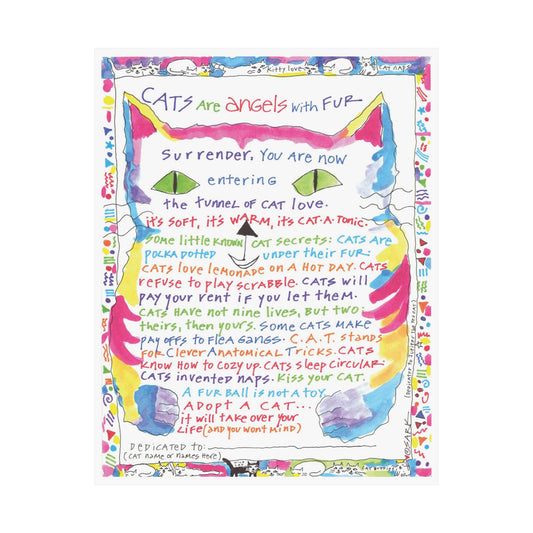 Kitty love
CAT NAPS
CATS Are angels with FUR
Surrender, You are now
entering
the tunnel of CAT LOVE.
it's SOFT, it's WARM, its CAT.A.TONIC.
Some little known CAT secrets: CATS are
POLKA DOTTED under their FUR.
CATS love lemonade on A HOT DAY. CATS
refuse to play scrabble. CATS will
pay your rent if you let them.
CATS Have not nine lives, BUT two:
theirs, then yours. Some CATS make
pay offs to flea gangs. C.A.T. stands
FOR Clever Anatomical Tricks. CATS
know How to cozy up. CATS sleep circular.
CATS invented naps. Kiss your CAT.
A FUR BALL is not A toy.
ADOPT A CAT...
it will take over your
LIFE (and you won't mind)
DEDICATED to:
(CAT name or names Here)
©SARK